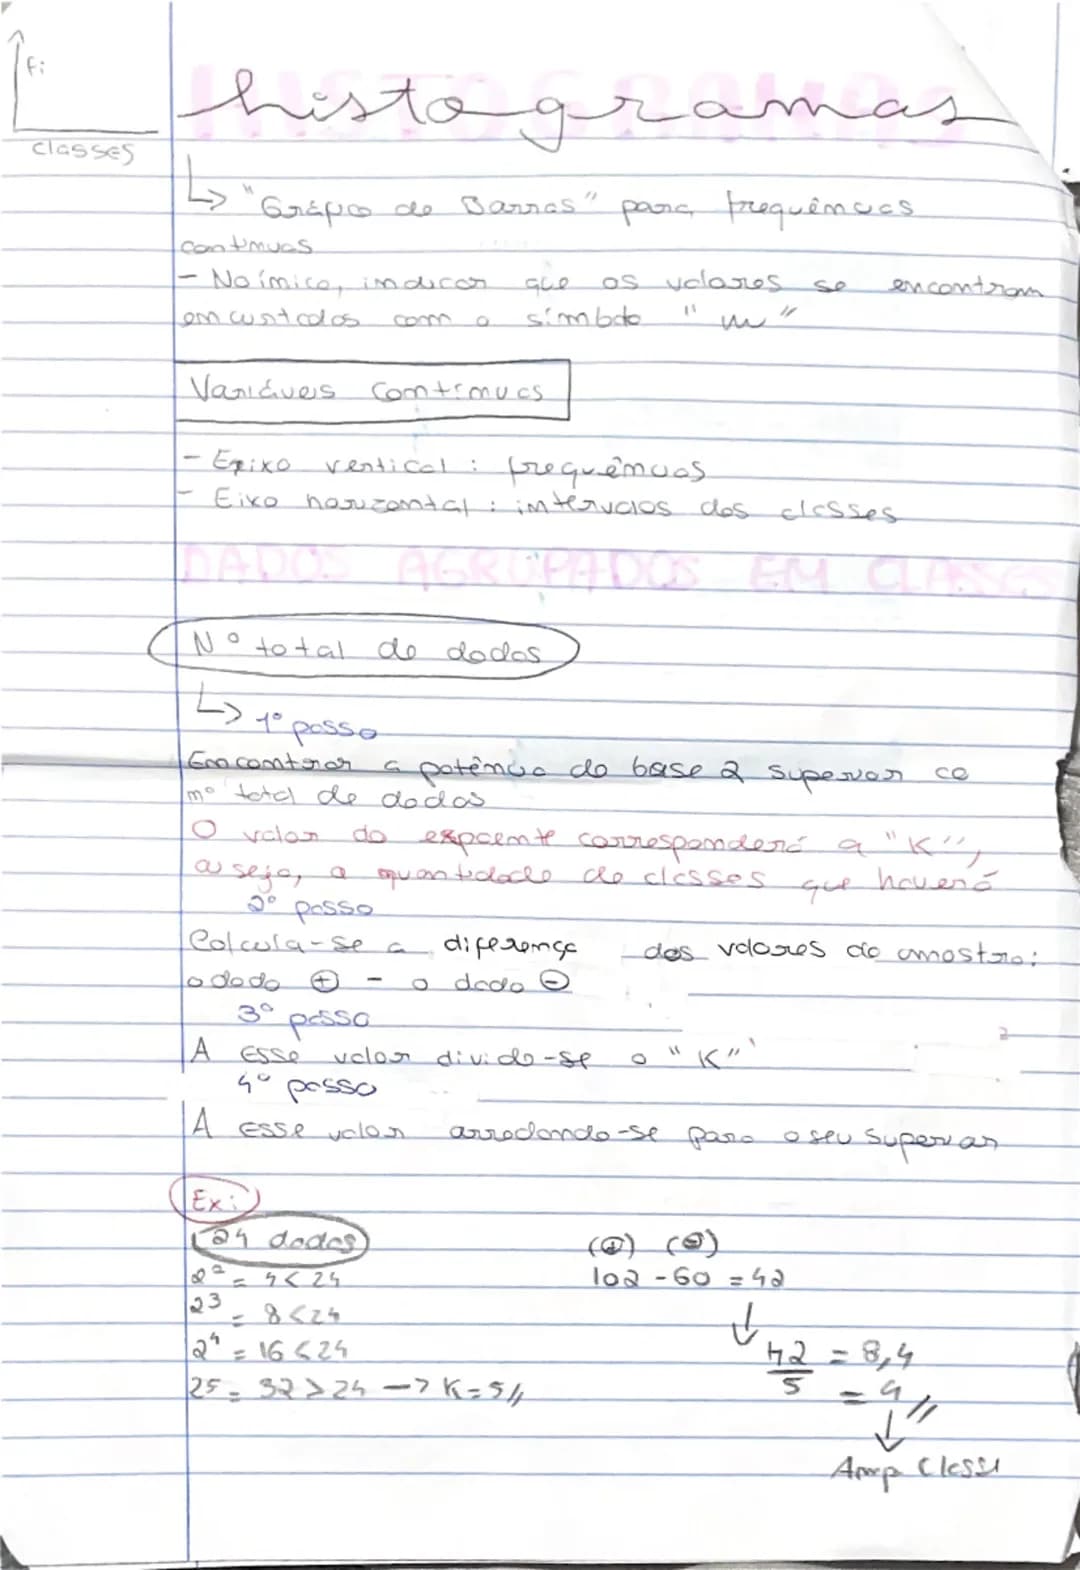 fi
classes
histogramas
↳ "Gráfico de Barras" para frequências
contínuas
- No início, indicar que os valores se encontram
encurtados com o símbolo "
Variáveis Contínuas
- Eixo vertical : frequências
- Eixo horizontal : intervalos das classes
DADOS AGRUPADOS EM CLASSES
Nº total de dados
↳ 1º passo
Encontrar a potência de base 2 superior ao
nº total de dados
O valor do expoente corresponderá a "K",
ou seja, a quantidade de classes que haverá
2º passo
Calcula-se a diferença dos valores da amostra:
o dado ⊕ - o dado ⊖
3º passo
A esse valor divide-se o "K"
4º passo
A esse valor arredonda-se para o seu superior
Ex:
24 dados
2² = 4 < 24
2³ = 8 < 24
2⁴ = 16 < 24
25 = 32 > 24 -> K = 5//
(⊕) (⊖)
102 - 60 = 42
↓
42/5 = 8,4
= 9//
↓
Amp Classe